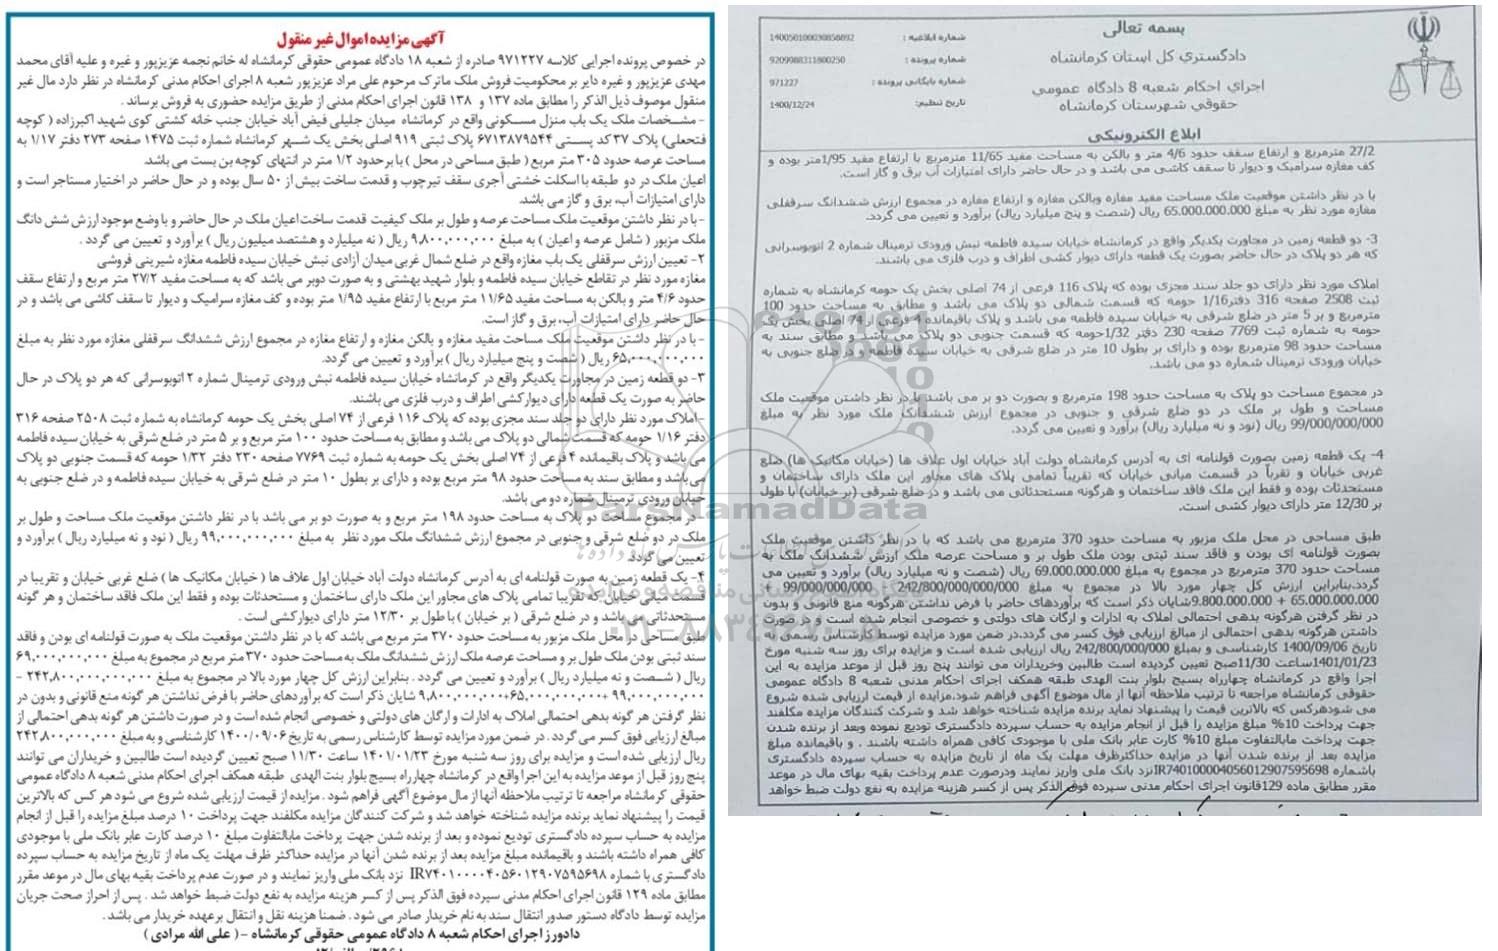 آگهی مزایده اموال غیر منقول
در خصوص پرونده اجرایی کلاسه ۹۷۱۲۲۷ صادره از شعبه ۱۸ دادگاه عمومی حقوقی کرمانشاه له خانم نجمه عزیزپور و غیره و علیه آقای محمد
مهدی عزیزپور و غیره دایر بر محکومیت فروش ملک ماترک مرحوم علی مراد عزیزپور شعبه ۸ اجرای احکام مدنی کرمانشاه در نظر دارد مال غیر
منقول موصوف ذیل الذکر را مطابق ماده ۱۳۷ و ۱۳۸ قانون اجرای احکام مدنی از طریق مزایده حضوری به فروش برساند .
- مشخصات ملک یک باب منزل مسکونی واقع در کرمانشاه میدان جلیلی فیض آباد خیابان جنب خانه کشتی کوی شهید اکبرزاده ( کوچه
فتحعلی) پلاک ۳۷ کد پستی ۶۷۱۳۸۷۹۵۴۴ پلاک ثبتی ۹۱۹ اصلی بخش یک شهر کرمانشاه شماره ثبت ۱۴۷۵ صفحه ۲۷۳ دفتر ۱/۱۷ به
مساحت عرصه حدود ۳۰۵ متر مربع ( طبق مساحی در محل ) با برحدود ۱/۲ متر در انتهای کوچه بن بست می باشد.
اعیان ملک در دو طبقه با اسکلت خشتی آجری سقف تیرچوب و قدمت ساخت بیش از ۵۰ سال بوده و در حال حاضر در اختیار مستاجر است و
دارای امتیازات آب، برق و گاز می باشد.
- با در نظر داشتن موقعیت ملک مساحت عرصه و طول بر ملک کیفیت قدمت ساخت اعیان ملک در حال حاضر و با وضع موجود ارزش شش دانگ
ملک مزبور ( شامل عرصه و اعیان ) به مبلغ ۹,۸۰۰,۰۰۰,۰۰۰ ریال ( نه میلیارد و هشتصد میلیون ریال ) برآورد و تعیین می گردد .
۲- تعیین ارزش سرقفلی یک باب مغازه واقع در ضلع شمال غربی میدان آزادی نبش خیابان سیده فاطمه مغازه شیرینی فروشی
مغازه مورد نظر در تقاطع خیابان سیده فاطمه و بلوار شهید بهشتی و به صورت دوبر می باشد که به مساحت مفید ۲۷/۲ متر مربع و ارتفاع سقف
حدود ۴/۶ متر و بالکن به مساحت مفید ۱۱/۶۵ متر مربع با ارتفاع مفید ۱/۹۵ متر بوده و کف مغازه سرامیک و دیوار تا سقف کاشی می باشد و در
حال حاضر دارای امتیازات آب، برق و گاز است.
- با در نظر داشتن موقعیت ملک مساحت مفید مغازه و بالکن مغازه و ارتفاع مغازه در مجموع ارزش ششدانگ سرقفلی مغازه مورد نظر به مبلغ
۶۵,۰۰۰,۰۰۰,۰۰۰ ریال ( شصت و پنج میلیارد ریال ) برآورد و تعیین می گردد.
۳- دو قطعه زمین در مجاورت یکدیگر واقع در کرمانشاه خیابان سیده فاطمه نبش ورودی ترمینال شماره ۲ اتوبوسرانی که هر دو پلاک در حال
حاضر به صورت یک قطعه دارای دیوارکشی اطراف و درب فلزی می باشند.
- املاک مورد نظر دارای دو جلد سند مجزی بوده که پلاک ۱۱۶ فرعی از ۷۴ اصلی بخش یک حومه کرمانشاه به شماره ثبت ۲۵۰۸ صفحه ۳۱۶
دفتر ۱/۱۶ حومه که قسمت شمالی دو پلاک می باشد و مطابق به مساحت حدود ۱۰۰ متر مربع و بر ۵ متر در ضلع شرقی به خیابان سیده فاطمه
می باشد و پلاک باقیمانده ۴ فرعی از ۷۴ اصلی بخش یک حومه به شماره ثبت ۷۷۶۹ صفحه ۲۳۰ دفتر ۱/۳۲ حومه که قسمت جنوبی دو پلاک
می باشد و مطابق سند به مساحت حدود ۹۸ متر مربع بوده و دارای بر بطول ۱۰ متر در ضلع شرقی به خیابان سیده فاطمه و در ضلع جنوبی به
خیابان ورودی ترمینال شماره دو می باشد.
- در مجموع مساحت دو پلاک به مساحت حدود ۱۹۸ متر مربع و به صورت دو بر می باشد با در نظر داشتن موقعیت ملک مساحت و طول بر
ملک در دو ضلع شرقی و جنوبی در مجموع ارزش ششدانگ ملک مورد نظر به مبلغ ۹۹,۰۰۰,۰۰۰,۰۰۰ ریال ( نود و نه میلیارد ریال ) برآورد و
تعیین می گردد.
۴- یک قطعه زمین به صورت قولنامه ای به آدرس کرمانشاه دولت آباد خیابان اول علاف ها ( خیابان مکانیک ها ) ضلع غربی خیابان و تقریبا در
قسمت میانی خیابان که تقریبا تمامی پلاک های مجاور این ملک دارای ساختمان و مستحدثات بوده و فقط این ملک فاقد ساختمان و هر گونه
مستحدثاتی می باشد و در ضلع شرقی ( بر خیابان ) با طول بر ۱۲/۳۰ متر دارای دیوارکشی است .
طبق مساحی در محل ملک مزبور به مساحت حدود ۳۷۰ متر مربع می باشد که با در نظر داشتن موقعیت ملک به صورت قولنامه ای بودن و فاقد
سند ثبتی بودن ملک طول بر و مساحت عرصه ملک ارزش ششدانگ ملک به مساحت حدود ۳۷۰ متر مربع در مجموع به مبلغ ۶۹,۰۰۰,۰۰۰,۰۰۰
ریال ( شصت و نه میلیارد ریال ) برآورد و تعیین می گردد . بنابراین ارزش کل چهار مورد بالا در مجموع به مبلغ ۲۴۲,۸۰۰,۰۰۰,۰۰۰,۰۰۰ -
۹۹,۰۰۰,۰۰۰,۰۰۰+۶۵,۰۰۰,۰۰۰,۰۰۰+۹,۸۰۰,۰۰۰,۰۰۰ شایان ذکر است که برآوردهای حاضر با فرض نداشتن هر گونه منع قانونی و بدون در
نظر گرفتن هر گونه بدهی احتمالی املاک به ادارات و ارگان های دولتی و خصوصی انجام شده است و در صورت داشتن هر گونه بدهی احتمالی از
مبالغ ارزیابی فوق کسر می گردد . در ضمن مورد مزایده توسط کارشناس رسمی به تاریخ ۱۴۰۰/۰۹/۰۶ کارشناسی و به مبلغ ۲۴۲,۸۰۰,۰۰۰,۰۰۰
ریال ارزیابی شده است و مزایده برای روز سه شنبه مورخ ۱۴۰۱/۰۱/۲۳ ساعت ۱۱/۳۰ صبح تعیین گردیده است طالبین و خریداران می توانند
پنج روز قبل از موعد مزایده به این اجرا واقع در کرمانشاه چهارراه بسیج بلوار بنت الهدی طبقه همکف اجرای احکام مدنی شعبه ۸ دادگاه عمومی
حقوقی کرمانشاه مراجعه تا ترتیب ملاحظه آنها از مال موضوع آگهی فراهم شود . مزایده از قیمت ارزیابی شده شروع می شود هر کس که بالاترین
قیمت را پیشنهاد نماید برنده مزایده شناخته خواهد شد و شرکت کنندگان مزایده مکلفند جهت پرداخت ۱۰ درصد مبلغ مزایده را قبل از انجام
مزایده به حساب سپرده دادگستری تودیع نموده و بعد از برنده شدن جهت پرداخت مابالتفاوت مبلغ ۱۰ درصد کارت عابر بانک ملی با موجودی
کافی همراه داشته باشند و باقیمانده مبلغ مزایده بعد از برنده شدن آنها در مزایده حداکثر ظرف مهلت یک ماه از تاریخ مزایده به حساب سپرده
دادگستری با شماره IR۷۴۰۱۰۰۰۰۴۰۵۶۰۱۲۹۰۷۵۹۵۶۹۸ نزد بانک ملی واریز نمایند و در صورت عدم پرداخت بقیه بهای مال در موعد مقرر
مطابق ماده ۱۲۹ قانون اجرای احکام مدنی سپرده فوق الذکر پس از کسر هزینه مزایده به نفع دولت ضبط خواهد شد . پس از احراز صحت جریان
مزایده توسط دادگاه دستور صدور انتقال سند به نام خریدار صادر می شود . ضمنا هزینه نقل و انتقال برعهده خریدار می باشد .
دادورز اجرای احکام شعبه ۸ دادگاه عمومی حقوقی کرمانشاه - ( علی الله مرادی )
بسمه تعالی
دادگستری کل استان کرمانشاه
اجرای احکام شعبه 8 دادگاه عمومی
حقوقی شهرستان کرمانشاه
شماره ابلاغیه : 140050100030858892
شماره پرونده : 9209988311800250
شماره بایگانی پرونده : 971227
تاریخ تنظیم: 1400/12/24
ابلاغ الکترونیکی
27/2 مترمربع و ارتفاع سقف حدود 4/6 متر و بالکن به مساحت مفید 11/65 مترمربع با ارتفاع مفید 1/95متر بوده و
کف مغازه سرامیک و دیوار تا سقف کاشی می باشد و در حال حاضر دارای امتیازات آب برق و گاز است.
با در نظر داشتن موقعیت ملک مساحت مفید مغازه وبالکن مغازه و ارتفاع مغازه در مجموع ارزش ششدانگ سرقفلی
مغازه مورد نظر به مبلغ 65.000.000.000 ریال (شصت و پنج میلیارد ریال) برآورد و تعیین می گردد.
3- دو قطعه زمین در مجاورت یکدیگر واقع در کرمانشاه خیابان سیده فاطمه نبش ورودی ترمینال شماره 2 اتوبوسرانی
که هر دو پلاک در حال حاضر بصورت یک قطعه دارای دیوار کشی اطراف و درب فلزی می باشند.
املاک مورد نظر دارای دو جلد سند مجزی بوده که پلاک 116 فرعی از 74 اصلی بخش یک حومه کرمانشاه به شماره
ثبت 2508 صفحه 316 دفتر 1/16 حومه که قسمت شمالی دو پلاک می باشد و مطابق به مساحت حدود 100
مترمربع و بر 5 متر در ضلع شرقی به خیابان سیده فاطمه می باشد و پلاک باقیمانده 4 فرعی از 74 اصلی بخش یک
حومه به شماره ثبت 7769 صفحه 230 دفتر 1/32حومه که قسمت جنوبی دو پلاک می باشد و مطابق سند به
مساحت حدود 98 مترمربع بوده و دارای بر بطول 10 متر در ضلع شرقی به خیابان سیده فاطمه و در ضلع جنوبی به
خیابان ورودی ترمینال شماره دو می باشد.
در مجموع مساحت دو پلاک به مساحت حدود 198 مترمربع و بصورت دو بر می باشد با در نظر داشتن موقعیت ملک
مساحت و طول بر ملک در دو ضلع شرقی و جنوبی در مجموع ارزش ششدانگ ملک مورد نظر به مبلغ
99/000/000/000 ریال (نود و نه میلیارد ریال) برآورد و تعیین می گردد.
4- یک قطعه زمین بصورت قولنامه ای به آدرس کرمانشاه دولت آباد خیابان اول علاف ها (خیابان مکانیک ها) ضلع
غربی خیابان و تقریباً در قسمت میانی خیابان که تقریباً تمامی پلاک های مجاور این ملک دارای ساختمان و
مستحدثات بوده و فقط این ملک فاقد ساختمان و هرگونه مستحدثاتی می باشد و در ضلع شرقی (بر خیابان) با طول
بر 12/30 متر دارای دیوار کشی است.
طبق مساحی در محل ملک مزبور به مساحت حدود 370 مترمربع می باشد که با در نظر داشتن موقعیت ملک
بصورت قولنامه ای بودن و فاقد سند ثبتی بودن ملک طول بر و مساحت عرصه ملک ارزش ششدانگ ملک به
مساحت حدود 370 مترمربع در مجموع به مبلغ 69.000.000.000 ریال (شصت و نه میلیارد ریال) برآورد و تعیین می
گردد.بنابراین ارزش کل چهار مورد بالا در مجموع به مبلغ 242/800/000/000/000 99/000/000/000 +
65.000.000.000 + 9.800.000.000شایان ذکر است که برآوردهای حاضر با فرض نداشتن هرگونه منع قانونی و بدون
در نظر گرفتن هرگونه بدهی احتمالی املاک به ادارات و ارگان های دولتی و خصوصی انجام شده است و در صورت
داشتن هرگونه بدهی احتمالی از مبالغ ارزیابی فوق کسر می گردد.در ضمن مورد مزایده توسط کارشناس رسمی به
تاریخ 1400/09/06 کارشناسی و بمبلغ 242/800/000/000 ریال ارزیابی شده است و مزایده برای روز سه شنبه مورخ
1401/01/23ساعت 11/30صبح تعیین گردیده است طالبین وخریداران می توانند پنج روز قبل از موعد مزایده به این
اجرا واقع در کرمانشاه چهارراه بسیج بلوار بنت الهدی طبقه همکف اجرای احکام مدنی شعبه 8 دادگاه عمومی
حقوقی کرمانشاه مراجعه تا ترتیب ملاحظه آنها از مال موضوع آگهی فراهم شود.مزایده از قیمت ارزیابی شده شروع
می شودهرکس که بالاترین قیمت را پیشنهاد نماید برنده مزایده شناخته خواهد شد و شرکت کنندگان مزایده مکلفند
جهت پرداخت 10% مبلغ مزایده را قبل از انجام مزایده به حساب سپرده دادگستری تودیع نموده وبعد از برنده شدن
جهت پرداخت مابالتفاوت مبلغ 10% کارت عابر بانک ملی با موجودی کافی همراه داشته باشند . و باقیمانده مبلغ
مزایده بعد از برنده شدن آنها در مزایده حداکثرظرف مهلت یک ماه از تاریخ مزایده به حساب سپرده دادگستری
باشماره IR740100004056012907595698نزد بانک ملی واریز نمایند ودرصورت عدم پرداخت بقیه بهای مال در موعد
مقرر مطابق ماده 129قانون اجرای احکام مدنی سپرده فوق الذکر پس از کسر هزینه مزایده به نفع دولت ضبط خواهد
ParsNamadData